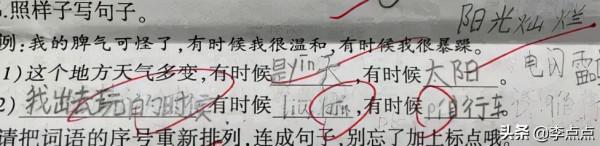 .照样子写句子。
阳光灿烂
例：我的脾气可怪了，有时候我很温和，有时候我很暴躁。
1)这个地方天气多变，有时候是yīn天，有时候太阳。
电闪雷
2)我出去玩自的时候有时候，有时候行车。
请把词语的序号重新排列，连成句子，别忘了加上标点哦。
头条 @李点点